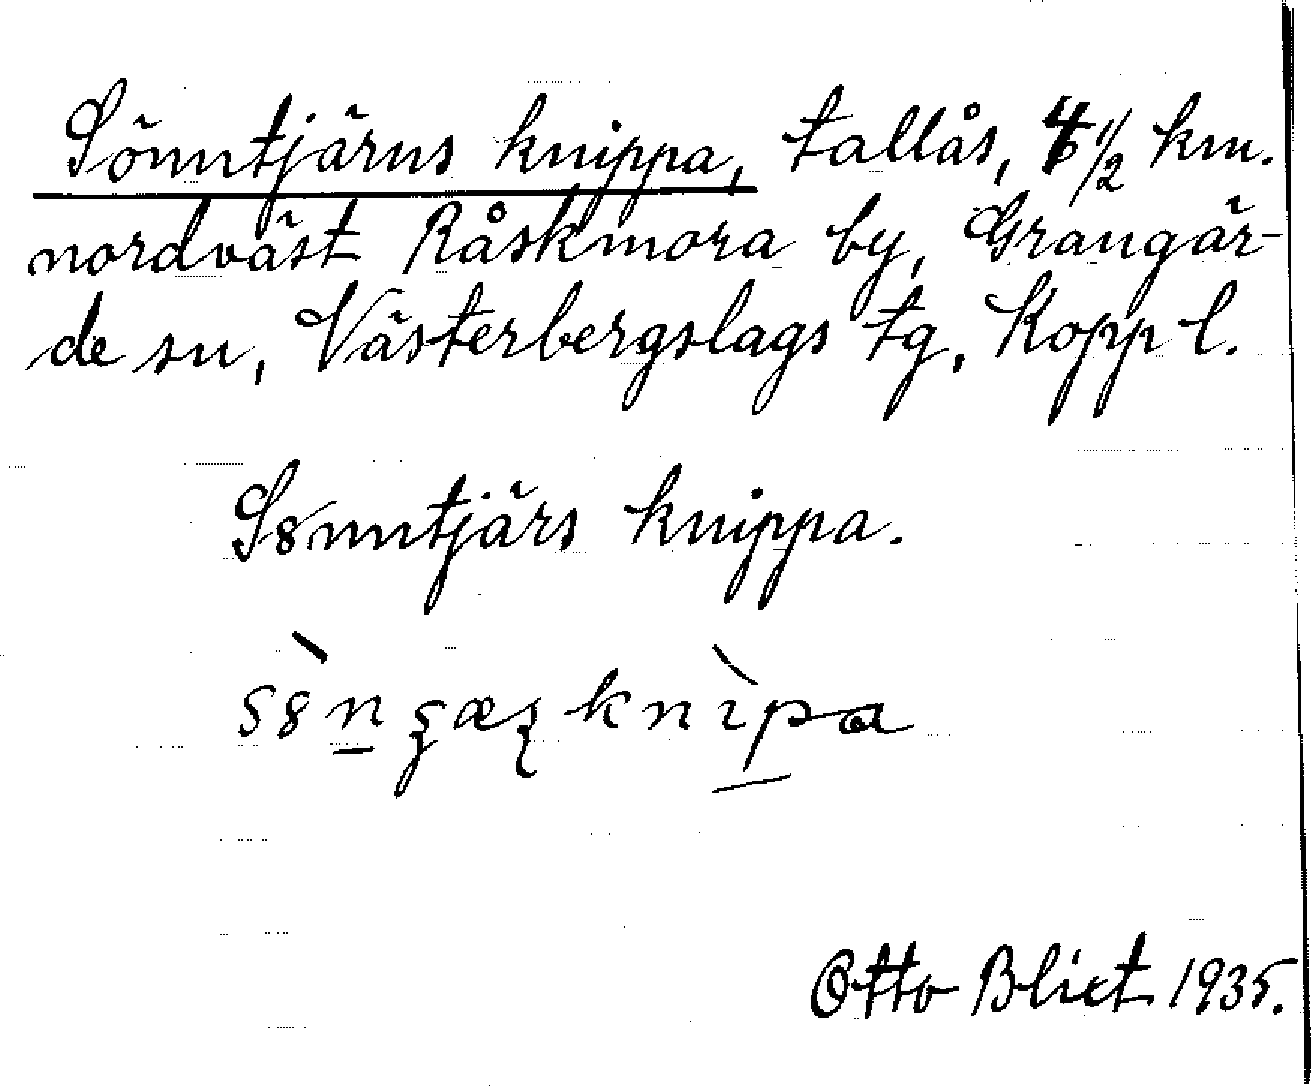 Sönntjärns knippa, tallås, 4 1/2 km.
nordväst Råskmora by, Grangär-
de sn, Västerbergslags tg, Kopp l.
S8nntjärs knippa.
Otto Blixt 1935.